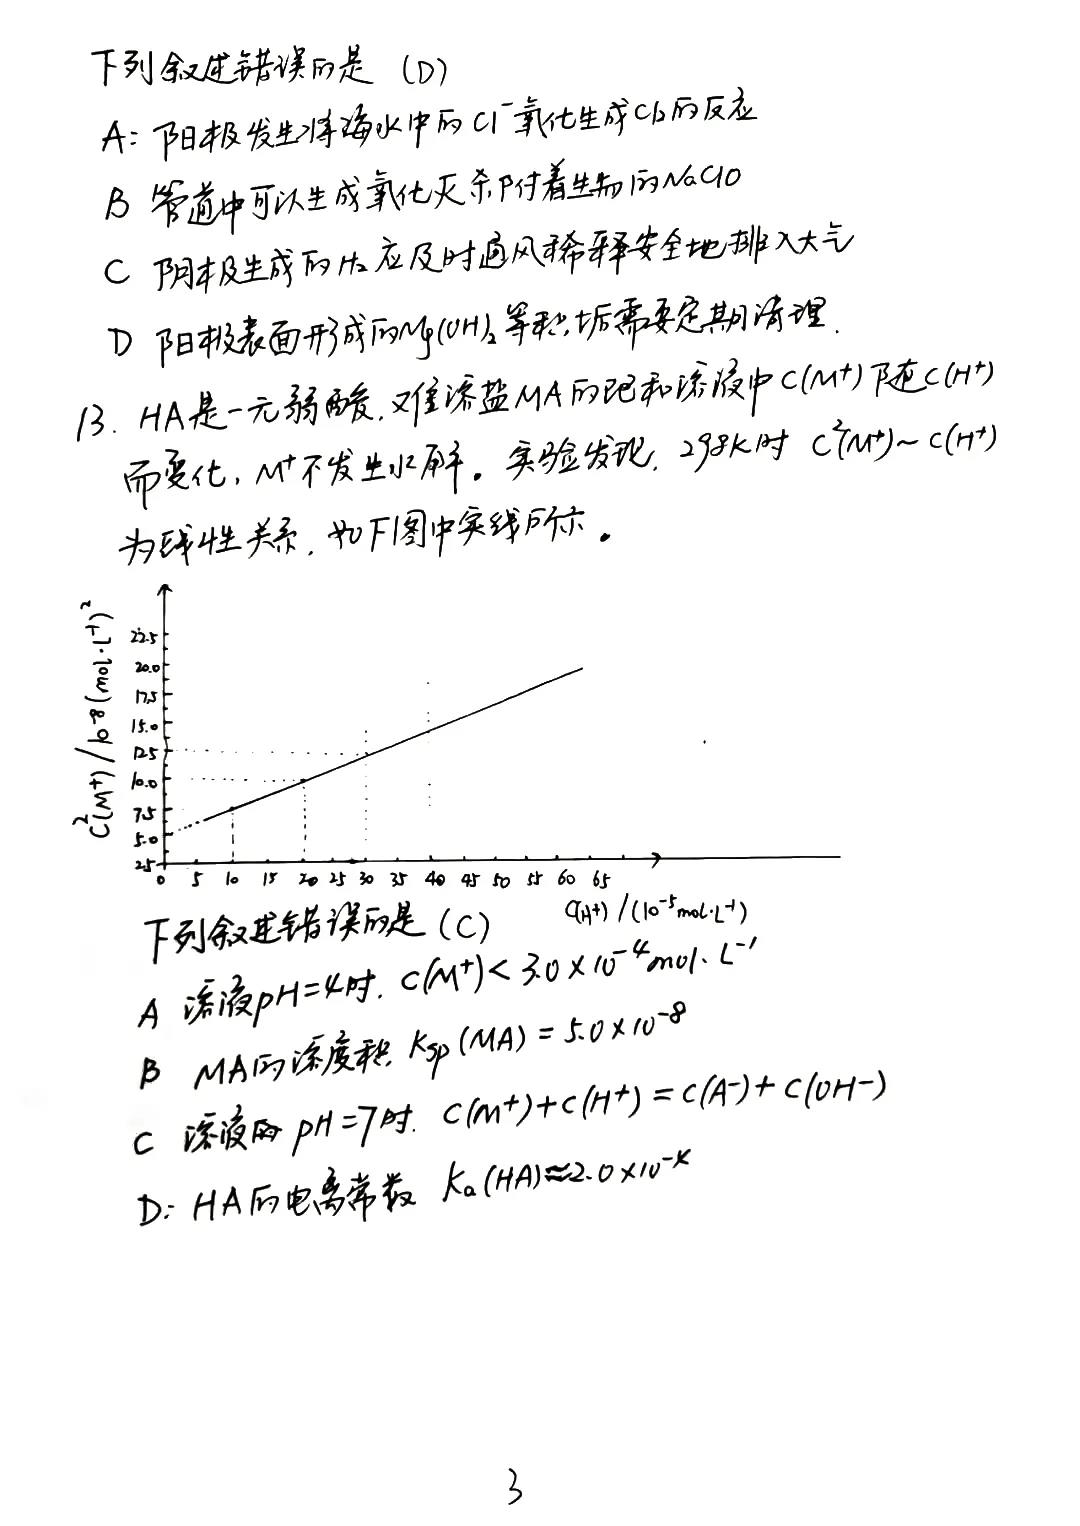 下列叙述错误的是 (D)
A: 阳极发生将海水中的Cl⁻氧化生成Cl₂的反应
B 管道中可以生成氧化灭杀附着生物的NaClO
C 阴极生成的H₂应及时通风稀释安全地排入大气
D 阳极表面形成的Mg(OH)₂等积垢需要定期清理.
13. HA是一元弱酸,难溶盐MA的饱和溶液中C(M⁺)随C(H⁺)
而变化, M⁺不发生水解。实验发现, 298K时 C²(M⁺)~C(H⁺)
为线性关系,如下图中实线所示。
C²(M⁺)/10⁻⁸(mol·L⁻¹)²
22.5
20.0
17.5
15.0
12.5
10.0
7.5
5.0
2.5
0 5 10 15 20 25 30 35 40 45 50 55 60 65
C(H⁺)/(10⁻⁵mol·L⁻¹)
下列叙述错误的是(C)
A 溶液pH=4时. C(M⁺)<3.0×10⁻⁴mol·L⁻¹
B MA的溶度积 Ksp(MA)=5.0×10⁻⁸
C 溶液的 pH=7时. C(M⁺)+C(H⁺)=C(A⁻)+C(OH⁻)
D: HA的电离常数 Ka(HA)≈2.0×10⁻⁴
3